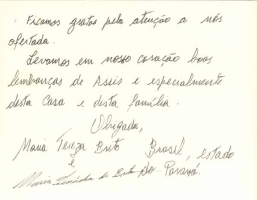 Ficamos gratas pela atenção a nós
ofertada.
Levamos em nosso coração boas
lembranças de Assis e especialmente
desta Casa e desta família.
Obrigada,
Maria Tereza Brito Brasil, estado
e do Paraná.
Maria de Brito